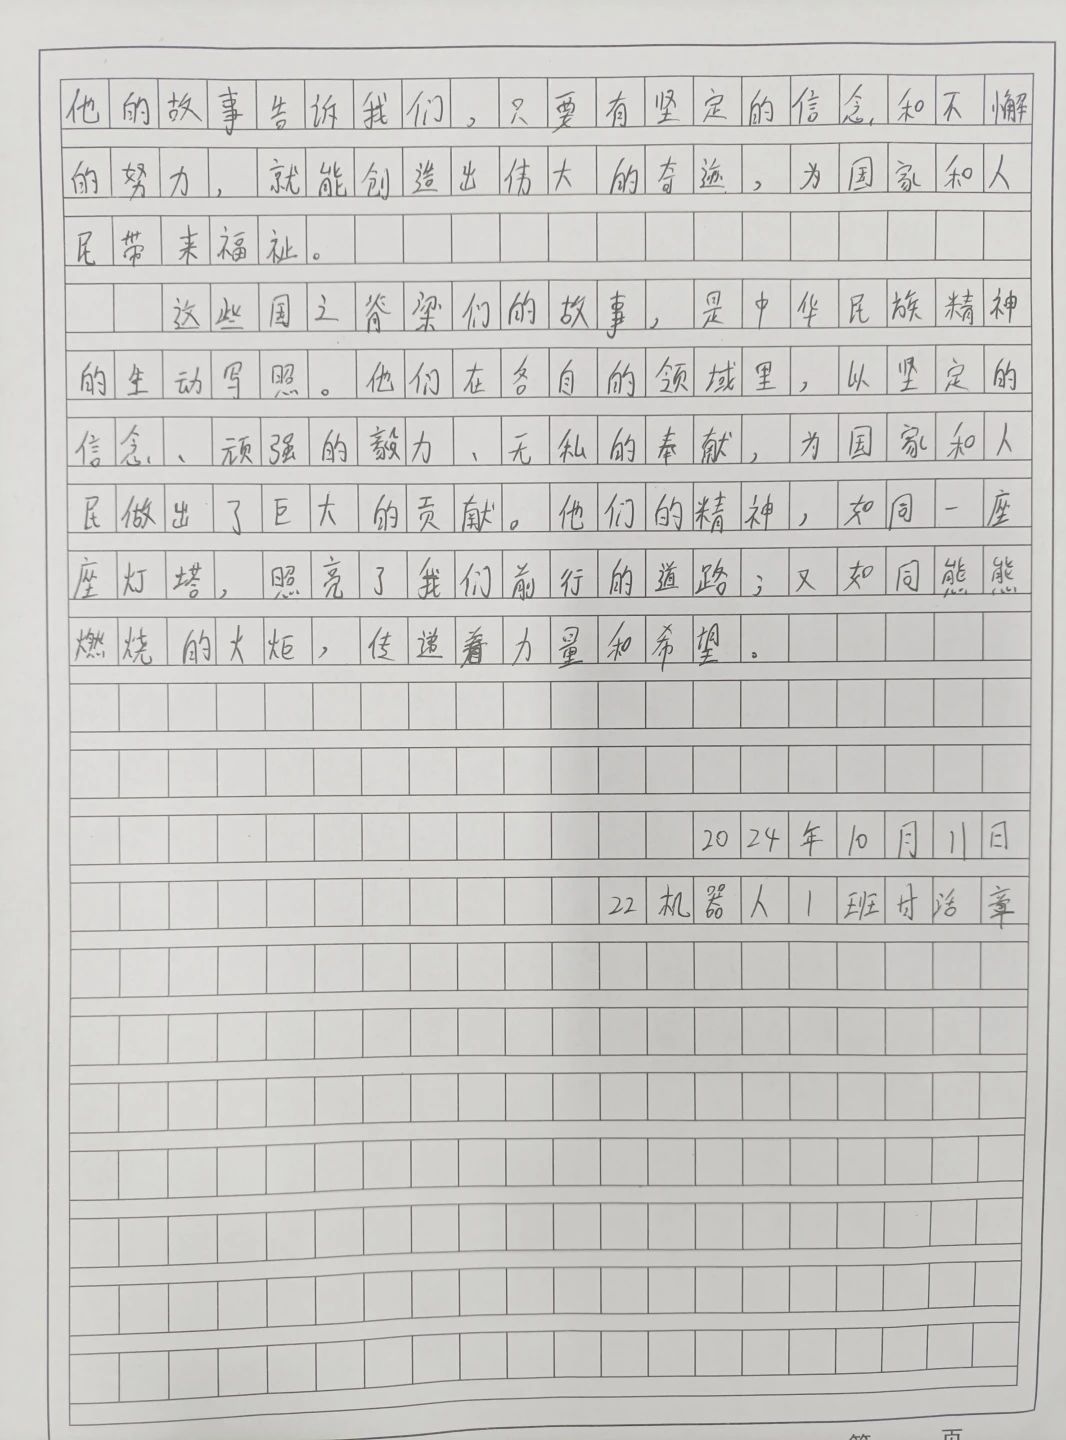 他的故事告诉我们，只要有坚定的信念和不懈
的努力，就能创造出伟大的奇迹，为国家和人
民带来福祉。
这些国之脊梁们的故事，是中华民族精神
的生动写照。他们在各自的领域里，以坚定的
信念、顽强的毅力、无私的奉献，为国家和人
民做出了巨大的贡献。他们的精神，如同一座
座灯塔，照亮了我们前行的道路；又如同熊熊
燃烧的火炬，传递着力量和希望。
2024年10月11日
22机器人1班甘活章
页